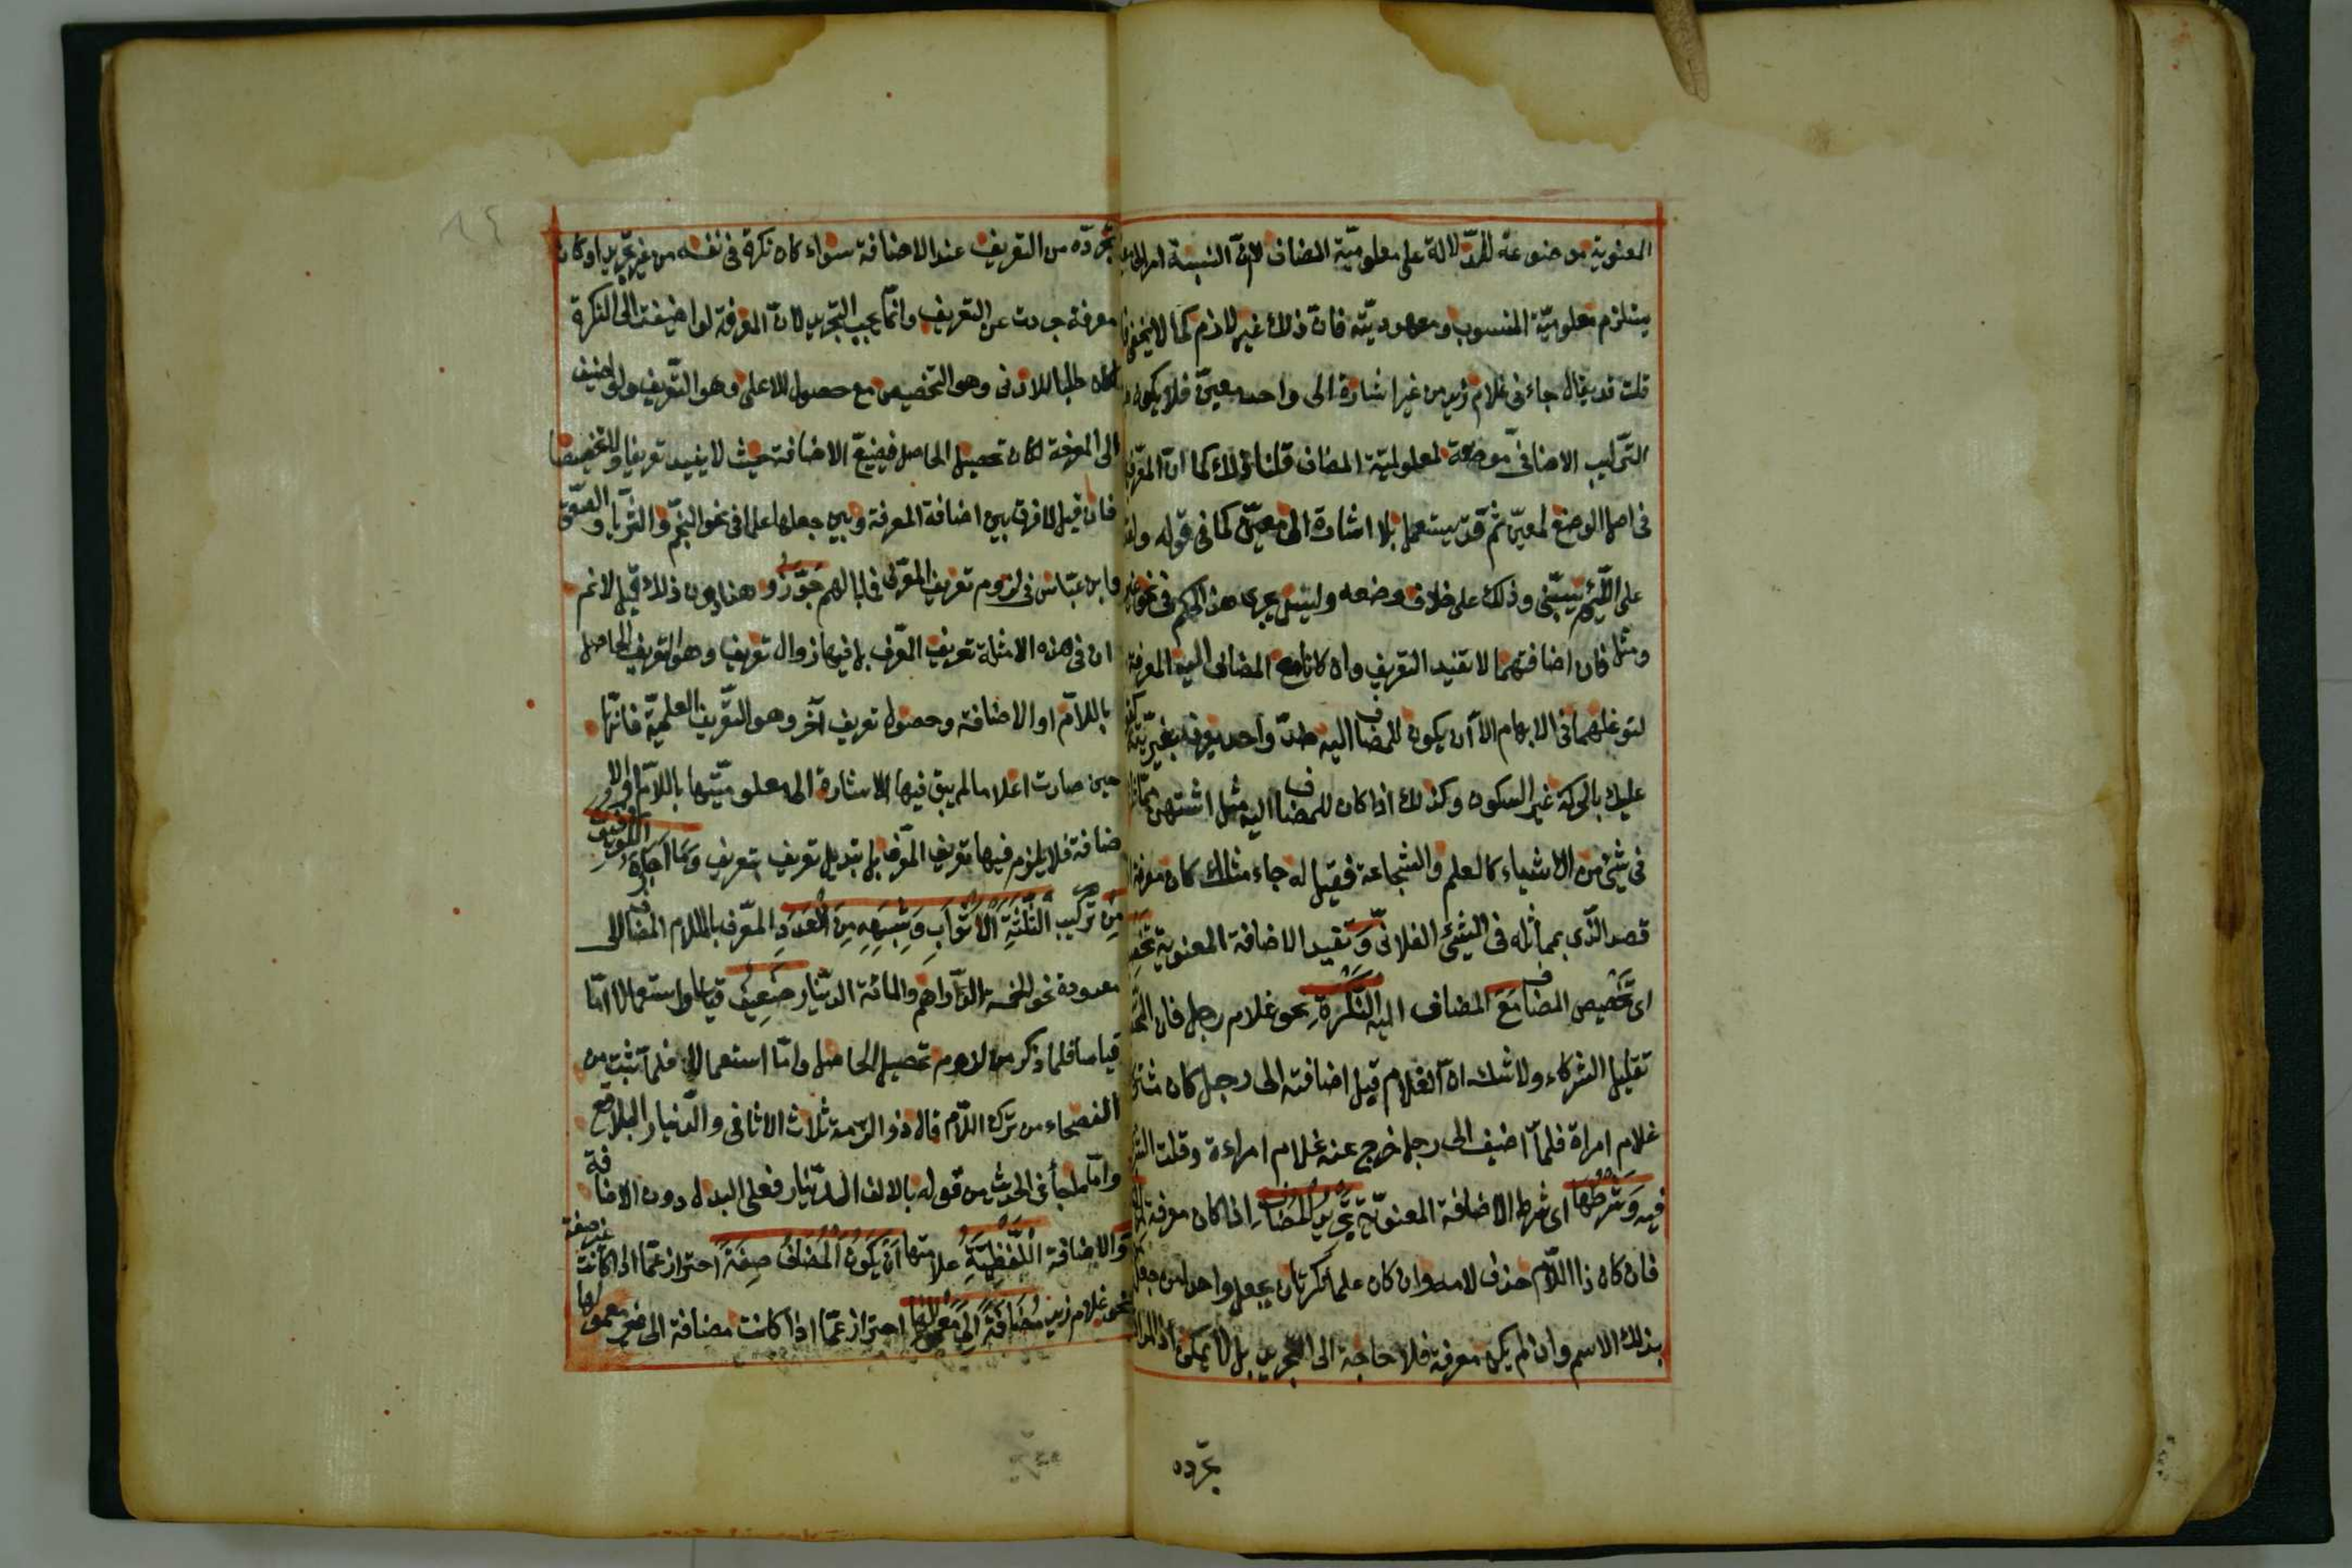 المعنوية موضوعة للدّلالة على معلوميّة المضاف لانّ النسبة امر الى
يستلزم معلوميّة المنسوب ومعهوديته فانّ ذلك غير لازم كما لا يخفى
قلت قد يقال جاءنى غلام زيد من غير اشارة الى واحد معيّن فلا يكون
التّركيب الاضافىّ موضوعة لمعلوميّة المضاف قلنا ذلك كما انّ المعرّف
فى اصل الوضع لمعيّن ثم قد يستعمل بلا اشارة الى معيّن كما فى قوله ولقد
على اللّئيم يسبّنى وذلك على خلاف وضعه وليس يجرى هذا الحكم فى نحو غير
ومثل فان اضافتهما لا تفيد التعريف وان كانا مع المضاف اليه المعرفة
لتوغلهما فى الابهام الاّ ان يكون للمضاف اليه ضدّ واحد يعرف بغيريّته
عليك بالحركة غير السكون وكذلك اذا كان للمضاف اليه مثل اشتهر
فى شئ من الاشياء كالعلم والشجاعة فقيل له جاء مثلك كان معرفة
قصد الّذى يماثله فى الشئ الفلانىّ وتفيد الاضافة المعنوية
اى تخصيص المضاف مَعَ المضاف اليه النَّكِرَةِ نحو غلام رجل فان
تقليل الشركاء ولا شك انّ الغلام قبل اضافته الى رجل كان
غلام امراة فلمّا اضيف الى رجل خرج عنه غلام امراءة وقلت
فيه وَشَرْطُهَا اى شرط الاضافة المعنويّة تَجْرِيدُ الْمُضَافِ اذا كان معرفة
فان كان ذا اللّام حذف لامه وان كان علما نكر بان يجعل واحد امن جعل
بذلك الاسم وان لم يكن معرفة فلا حاجة الى التجريد بل لا يمكن
تجرّده
تجرّده من التعريف عند الاضافة سواء كان نكرة فى نفسه من غير تجريد او كان
معرفة جردت عن التعريف وانّما يجب التجريد لانّ المعرفة لو اضيفت الى النكرة
لكان طلبا للادنى وهو التخصيص مع حصول للاعلى وهو التّعريف ولو اضيف
الى المعرفة لكان تحصيل الحاصل فيضيع الاضافة حيث لا يفيد تعريفا ولا تخصيصا
فان قيل لا فرق بين اضافة المعرفة وبين جعلها علما فى نحو النجم والثّريا والصّعق
وابن عبّاس فى لزوم تعريف المعرّف فما بالهم جَوّزُو هذا دون ذلك قيل لا نم
ان فى هذه الامثلة تعريف المعّرف بل فيها زوال تعريف وهو التعريف الحاصل
باللاّم او الاضافة وحصول تعريف آخر وهو التّعريف العلميّة فانّها
حين صارت اعلاما لم يبق فيها الاشارة الى معلوميّتها باللاّم او الا
ضافة فلا يلزم فيها تعريف المعرّف بل تبديل تعريف بتعريف وَمَا اَجَازَهُ الكوفيون
مِنْ تركيب الثَّلثَةِ الْاَثْوَابِ وَشِبْهِهِ مِنَ الْعَدَدِ المعرّف باللام المضاف الى
معدودة نحو الخمسة الدّراهم والمائة الديّنار ضَعِيفٌ قياسا واستعمالا امّا
قياسا فلما ذكر من لزوم تحصيل الحاصل وامّا استعمالا فلما ثبت من
الفصحاء من ترك اللاّم قال ذو الرّمة ثلاث الاثافى والدّيار البلاقع
وامّا ما جأ فى الحديث من قوله بالالف الدّينار فعلى البدل دون الاضافة
وَالاضافة اللَّفْظِيَّةُ علامتها اَنْ يَكُونَ الْمُضَافُ صِفَةً احتراز عمّا اذا كانت غير صفة
نحو غلام زيد مُضَافَةً اِلَى مَعْمُولِهَا احتراز عمّا اذا كانت مضافة الى غير معمولها